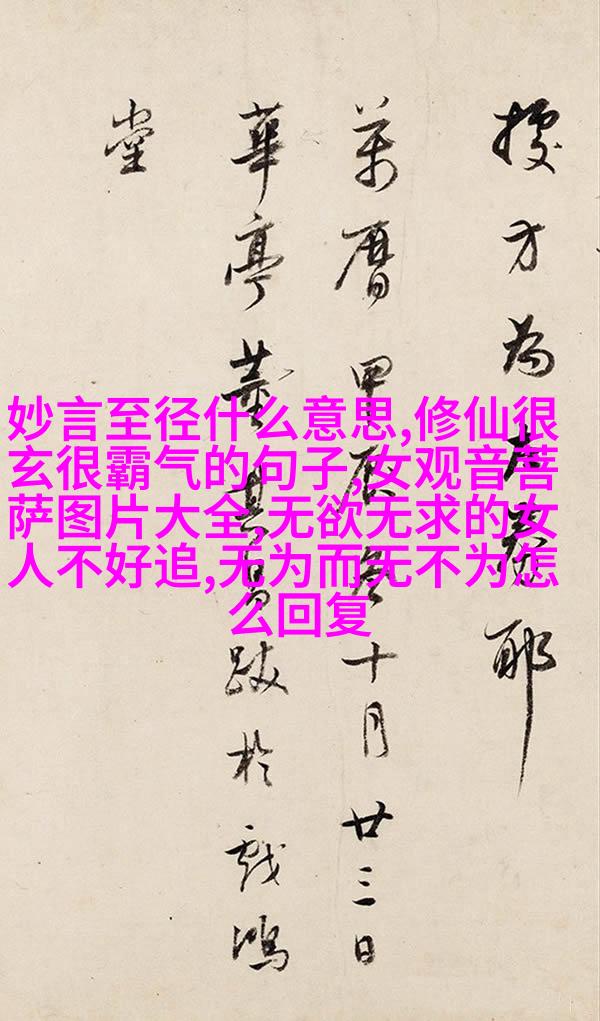 妙言至径什么意思,修仙很
玄很霸气的句子,女观音菩
萨图片大全,无欲无求的女
人不好追,无为而无不为怎
么回复
方為耶
萬曆甲辰冬十月廿三日
華亭董其昌跋於戲鴻
堂